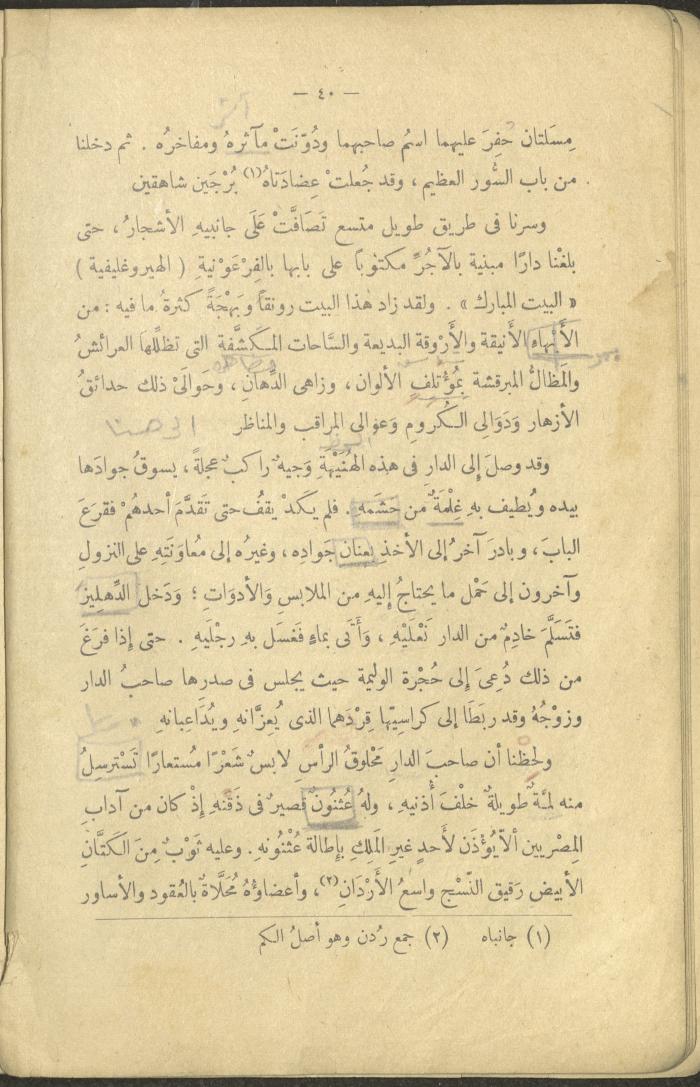 — ٤٠ —
مِسَلتان حُفِرَ عليهما اسمُ صاحبهما ودُوّنَتْ مآثرهُ ومفاخرُه . ثم دخلنا
من باب السُّور العظيم ، وقد جُعلتْ عِضادَتاهُ(١) بُرْجَين شاهقين
وسرنا فى طريق طويل متسع تَصَافَّتْ عَلَى جانبيهِ الأشجارُ ، حتى
بلغْنا دارًا مبنية بالآجُرِّ مكتوبًا على بابها بالفِرْعَوْنيةِ ( الهيروغليفية )
« البيت المبارك » . ولقد زاد هٰذا البيت رونقاً وبَهْجَةً كثرةُ ما فيه : من
الأَبْهاءِ الأنيقة والأَرْوقة البديعة والسَّاحات المكشَّفة التى تظللها العرائشُ
والمَظالُّ المبرقشة بمُؤْتلفِ الألوان ، وزاهى الدِّهانِ ، وحَوالَىْ ذلك حدائقُ
الأزهار وَدَوَالِى الكُرومِ وَعوَالى المراقب والمناظر
وقد وصلَ إلى الدارِ فى هذه الهُنَيْهَةِ وَجيهٌ راكبٌ عجلةً ، يسوقُ جوادَها
بيده ويُطيف بهِ غِلْمَةٌ من حَشَمهِ . فلم يكَدْ يقفُ حتى تَقدَّمَ أحدهُمْ فقرَعَ
البابَ ، وبادرَ آخرُ إلى الأخذِ بعنانِ جَوادِه ، وغيرُه إلى مُعاوَنَتِهِ على النزولِ
وآخرون إلى حَمْل ما يحتاجُ إليهِ من الملابسِ وَالأدوَاتِ ؛ وَدَخلَ الدِّهليزَ
فتَسَلَّمَ خادِمٌ من الدار نَعْلَيْهِ ، وَأَتَى بماءٍ فَغَسَل بهِ رجْلَيهِ . حتى إذا فرَغَ
من ذلك دُعِىَ إلى حُجْرة الوليمة حيث يجلس فى صدرها صاحبُ الدار
وزوْجُهُ وقد ربَطَا إلى كراسيِّها قِرْدَهما الذى يُعِزَّانهِ ويُدَاعِبانهِ
ولحظْنا أن صاحبَ الدارِ مَحْلوقُ الرأسِ لابسٌ شَعْرًا مُستعارًا تَسْترسِلُ
منه لمَّةٌ طويلةٌ خلْفَ أُذنيهِ ، ولهُ عُثنُونٌ قصيرٌ فى ذَقنهِ إذْ كان من آدابِ
المِصْريين ألاّ يُؤْذَن لأَحدٍ غيرِ المَلِكِ بإطالة عُثْنُونهِ . وعليه ثَوْبٌ مِنَ الكَتَّانِ
الأبيض رَقيق النّسْج واسعُ الأَرْدَانِ(٢) ، وأعضاؤُهُ مُحَلَّاةٌ بالعُقود والأساور
(١) جانباه (٢) جمع رُدن وهو أصلُ الكم